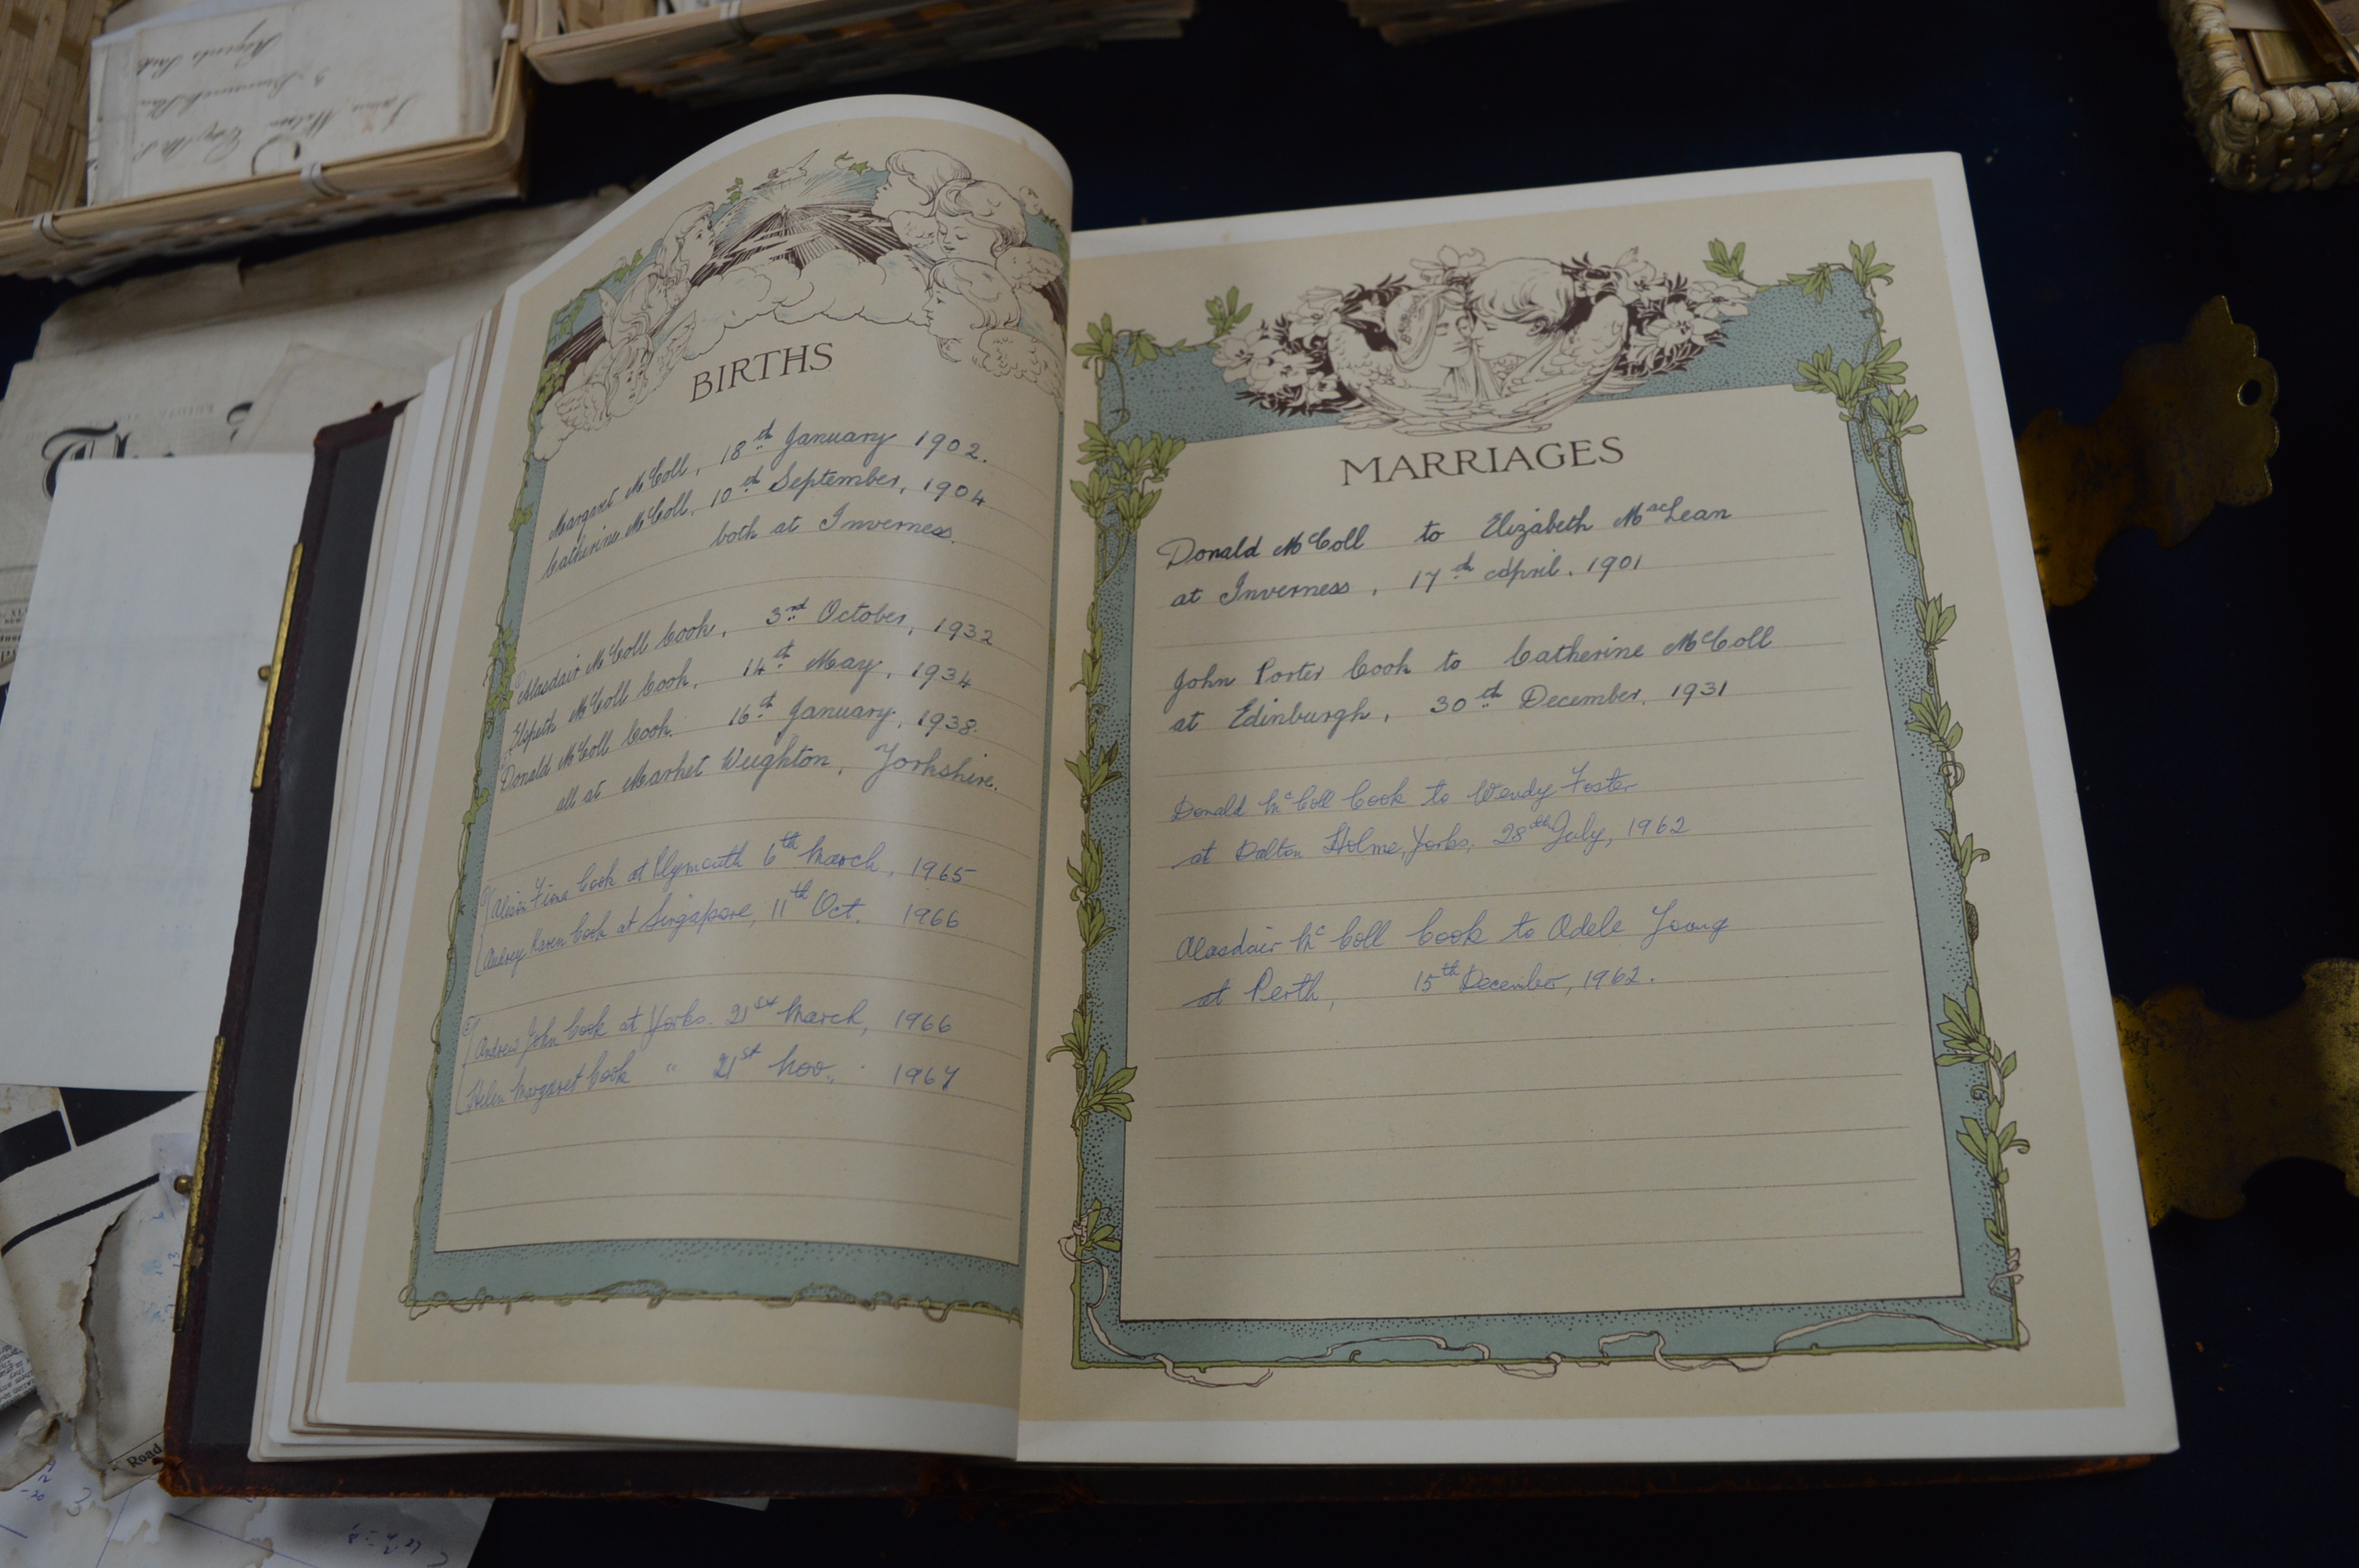 BIRTHS
Margaret McColl, 18th January 1902.
Catherine McColl, 10th September, 1904
both at Inverness.
Alasdair McColl Cook, 3rd October, 1932
Elspeth McColl Cook, 14th May, 1934
Donald McColl Cook. 16th January, 1938.
all at Market Weighton, Yorkshire.
Alison Fiona Cook at Plymouth 6th March, 1965
Audrey Karen Cook at Singapore, 11th Oct. 1966
Andrew John Cook at Yorks. 21st March, 1966
Helen Margaret Cook " 21st Nov., 1967
MARRIAGES
Donald McColl to Elizabeth MacLean
at Inverness, 17th April, 1901
John Porter Cook to Catherine McColl
at Edinburgh, 30th December, 1931
Donald McColl Cook to Wendy Foster
at Dalton Holme, Yorks, 28th July, 1962
Alasdair McColl Cook to Adele Young
at Perth, 15th December, 1962.
The
Road